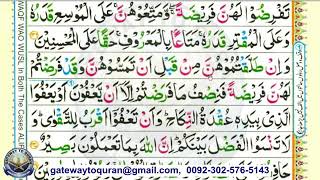 تَفۡرِضُوۡا لَهُنَّ فَرِيۡضَةً ۖۚ وَّمَتِّعُوۡهُنَّ ۚ عَلَى الۡمُوۡسِعِ قَدَرُهٗ
وَعَلَى الۡمُقۡتِرِ قَدَرُهٗ ۚ مَتَاعًۢا بِالۡمَعۡرُوۡفِ ۚ حَقًّا عَلَى الۡمُحۡسِنِيۡنَ
وَاِنۡ طَلَّقۡتُمُوۡهُنَّ مِنۡ قَبۡلِ اَنۡ تَمَسُّوۡهُنَّ وَقَدۡ فَرَضۡتُمۡ
لَهُنَّ فَرِيۡضَةً فَنِصۡفُ مَا فَرَضۡتُمۡ اِلَّاۤ اَنۡ يَّعۡفُوۡنَ اَوۡ يَعۡفُوَا
الَّذِىۡ بِيَدِهٖ عُقۡدَةُ النِّكَاحِ ؕ وَاَنۡ تَعۡفُوۡٓا اَقۡرَبُ لِلتَّقۡوٰى ؕ وَ
لَا تَنۡسَوُا الۡفَضۡلَ بَيۡنَكُمۡ ؕ اِنَّ اللّٰهَ بِمَا تَعۡمَلُوۡنَ بَصِيۡرٌ
gatewaytoquran@gmail.com, 0092-302-576-5143
WAQF WAO WUSL In Both The Cases ALIF